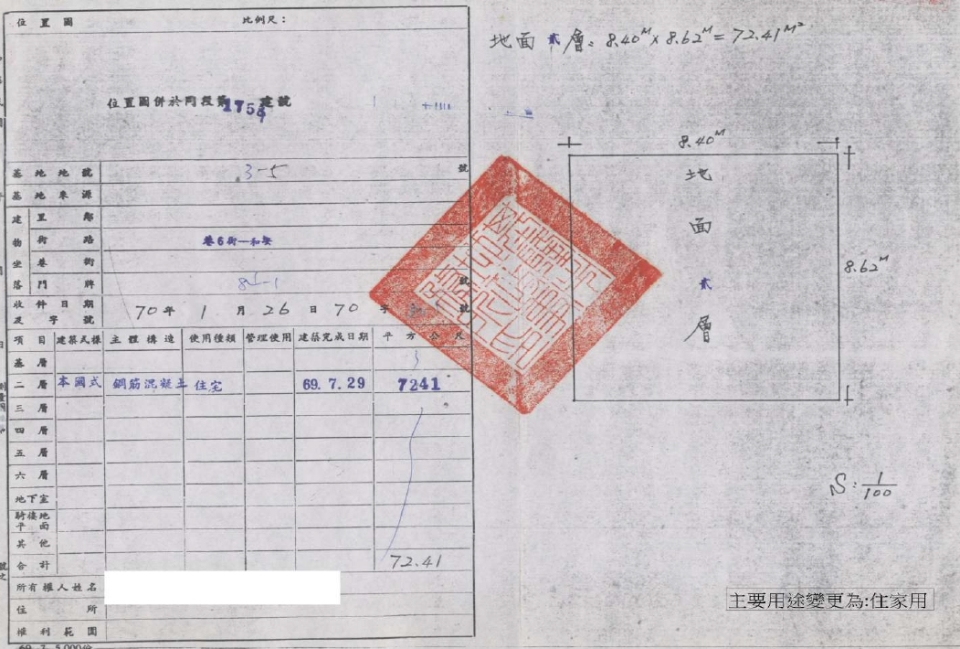 位置圖 比例尺：
位置圖併於同段第1754建號
基地地號 3-5 號
基地來源
建物坐落 里鄰
街路
巷衖 巷6街一和榮
門牌 號
收件日期及字號 70年1月26日70字 號
項目 建築式樣 主體構造 使用種類 管理使用 建築完成日期 平方公尺
基層
二層 本國式 鋼筋混凝土 住宅 69.7.29 7241
三層
四層
五層
六層
地下室
騎樓地平面
其他
合計 72.41
所有權人姓名
住所
權利範圍
69.7.5,000份
地面貳層=8.40M×8.62M=72.41M²
8.40M
地面貳層
8.62M
S:1/100
主要用途變更為:住家用